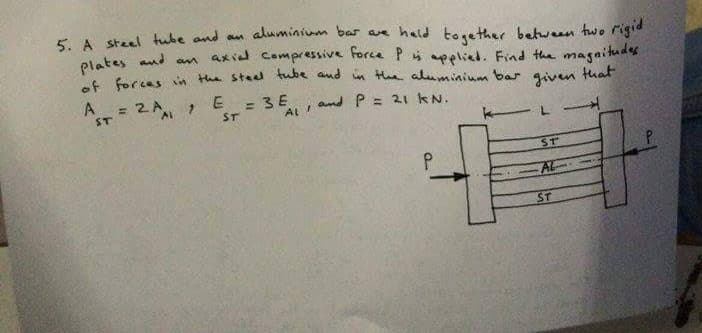 5. A steel tube and an aluminium bar are held together between two rigid
plates and an axial compressive force P is applied. Find the magnitudes
of forces in the steel tube and in the aluminium bar given that
A_ST = 2A_Al , E_ST = 3E_Al , and P = 21 kN.
L
ST
P
P
AL
ST